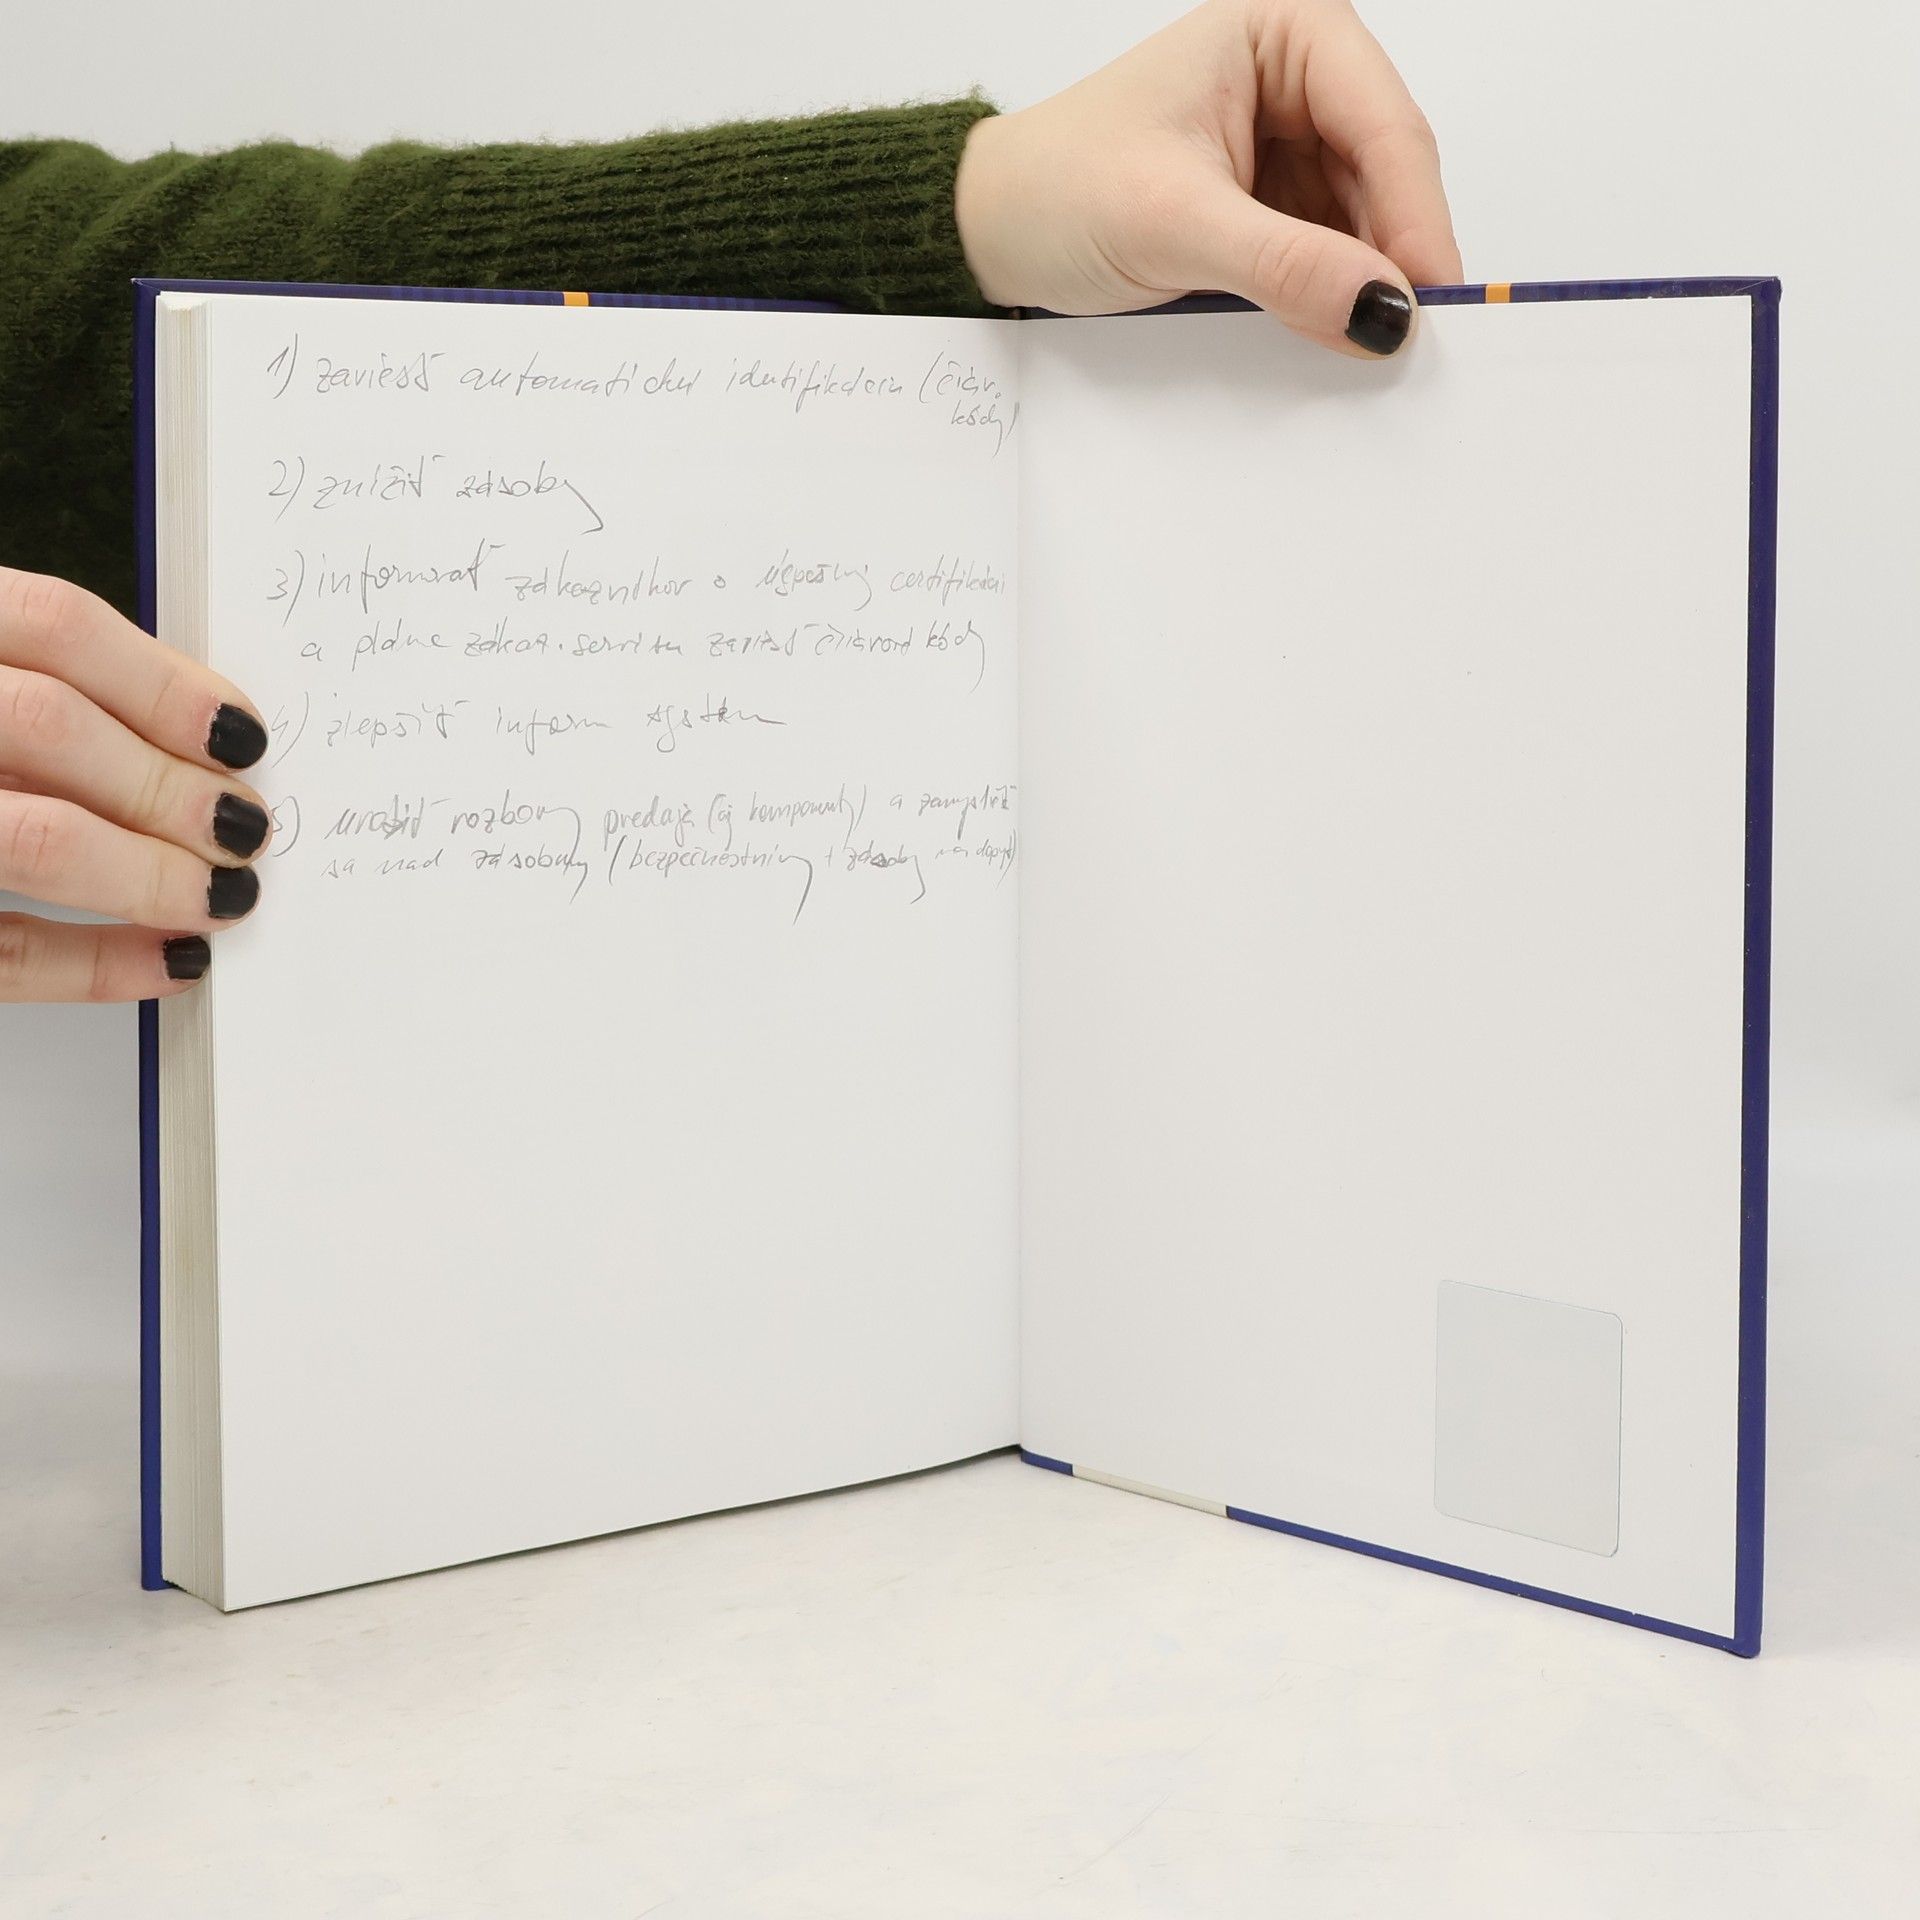 1) zaviesť automatickú identifikáciu (čiar.
kódy)
2) znížiť zásoby
3) informovať zákazníkov o úspešnej certifikácii
a pláne zákaz. servisu zaviesť čiarové kódy
4) zlepšiť inform systém
5) urobiť rozbory predaja (aj komponenty) a zamyslieť
sa nad zásobami (bezpečnostnými + zásoby na dopyt)